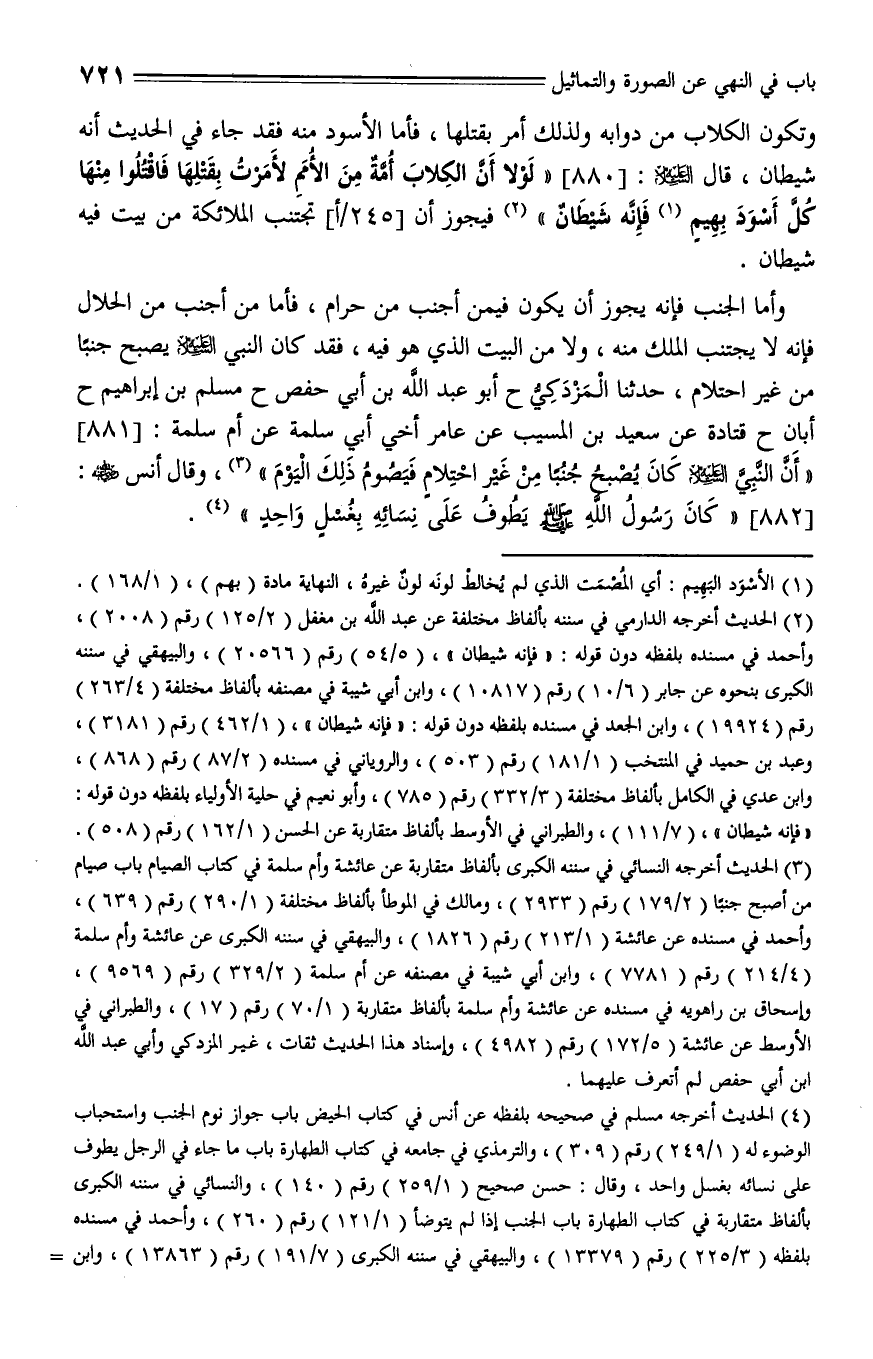 باب في النهي عن الصورة والتماثيل ٧٢١
وتكون الكلاب من دوابه ولذلك أمر بقتلها ، فأما الأسود منه فقد جاء في الحديث أنه
شيطان ، قال عليه السلام : [٨٨٠] « لَوْلا أَنَّ الكِلابَ أُمَّةٌ مِنَ الأُمَمِ لأَمَرْتُ بِقَتْلِهَا فَاقْتُلُوا مِنْهَا
كُلَّ أَسْوَدَ بِهِيمٍ (١) فَإِنَّه شَيْطَانٌ » (٢) فيجوز أن [٢٤٥/أ] تجتنب الملائكة من بيت فيه
شيطان .
وأما الجنب فإنه يجوز أن يكون فيمن أجنب من حرام ، فأما من أجنب من الحلال
فإنه لا يجتنب الملك منه ، ولا من البيت الذي هو فيه ، فقد كان النبي عليه السلام يصبح جنبًا
من غير احتلام ، حدثنا الْمَزْدَكِيُّ ح أبو عبد اللَّه بن أبي حفص ح مسلم بن إبراهيم ح
أبان ح قتادة عن سعيد بن المسيب عن عامر أخي أبي سلمة عن أم سلمة : [٨٨١]
« أَنَّ النَّبِيَّ عليه السلام كَانَ يُصْبِحُ جُنُبًا مِنْ غَيْرِ احْتِلامٍ فَيَصُومُ ذَلِكَ الْيَوْمَ » (٣) ، وقال أنس رضي الله عنه :
[٨٨٢] « كَانَ رَسُولُ اللَّهِ ﷺ يَطُوفُ عَلَى نِسَائِهِ بِغُسْلٍ وَاحِدٍ » (٤) .
(١) الأسْوَد البَهِيم : أي المُصْمَت الذي لم يُخالطْ لونَه لونٌ غيرهُ ، النهاية مادة ( بهم ) ، ( ١٦٨/١ ) .
(٢) الحديث أخرجه الدارمي في سننه بألفاظ مختلفة عن عبد اللَّه بن مغفل ( ١٢٥/٢ ) رقم ( ٢٠٠٨ ) ،
وأحمد في مسنده بلفظه دون قوله : « فإنه شيطان » ، ( ٥٤/٥ ) رقم ( ٢٠٥٦٦ ) ، والبيهقي في سننه
الكبرى بنحوه عن جابر ( ١٠/٦ ) رقم ( ١٠٨١٧ ) ، وابن أبي شيبة في مصنفه بألفاظ مختلفة ( ٢٦٣/٤ )
رقم ( ١٩٩٢٤ ) ، وابن الجعد في مسنده بلفظه دون قوله : « فإنه شيطان » ، ( ٤٦٢/١ ) رقم ( ٣١٨١ ) ،
وعبد بن حميد في المنتخب ( ١٨١/١ ) رقم ( ٥٠٣ ) ، والروياني في مسنده ( ٨٧/٢ ) رقم ( ٨٦٨ ) ،
وابن عدي في الكامل بألفاظ مختلفة ( ٣٣٢/٣ ) رقم ( ٧٨٥ ) ، وأبو نعيم في حلية الأولياء بلفظه دون قوله :
« فإنه شيطان » ، ( ١١١/٧ ) ، والطبراني في الأوسط بألفاظ متقاربة عن الحسن ( ١٦٢/١ ) رقم ( ٥٠٨ ) .
(٣) الحديث أخرجه النسائي في سننه الكبرى بألفاظ متقاربة عن عائشة وأم سلمة في كتاب الصيام باب صيام
من أصبح جنبًا ( ١٧٩/٢ ) رقم ( ٢٩٣٣ ) ، ومالك في الموطأ بألفاظ مختلفة ( ٢٩٠/١ ) رقم ( ٦٣٩ ) ،
وأحمد في مسنده عن عائشة ( ٢١٣/١ ) رقم ( ١٨٢٦ ) ، والبيهقي في سننه الكبرى عن عائشة وأم سلمة
( ٢١٤/٤ ) رقم ( ٧٧٨١ ) ، وابن أبي شيبة في مصنفه عن أم سلمة ( ٣٢٩/٢ ) رقم ( ٩٥٦٩ ) ،
وإسحاق بن راهويه في مسنده عن عائشة وأم سلمة بألفاظ متقاربة ( ٧٠/١ ) رقم ( ١٧ ) ، والطبراني في
الأوسط عن عائشة ( ١٧٢/٥ ) رقم ( ٤٩٨٢ ) ، وإسناد هذا الحديث ثقات ، غير المزدكي وأبي عبد اللَّه
ابن أبي حفص لم أتعرف عليهما .
(٤) الحديث أخرجه مسلم في صحيحه بلفظه عن أنس في كتاب الحيض باب جواز نوم الجنب واستحباب
الوضوء له ( ٢٤٩/١ ) رقم ( ٣٠٩ ) ، والترمذي في جامعه في كتاب الطهارة باب ما جاء في الرجل يطوف
على نسائه بغسل واحد ، وقال : حسن صحيح ( ٢٥٩/١ ) رقم ( ١٤٠ ) ، والنسائي في سننه الكبرى
بألفاظ متقاربة في كتاب الطهارة باب الجنب إذا لم يتوضأ ( ١٢١/١ ) رقم ( ٢٦٠ ) ، وأحمد في مسنده
بلفظه ( ٢٢٥/٣ ) رقم ( ١٣٣٧٩ ) ، والبيهقي في سننه الكبرى ( ١٩١/٧ ) رقم ( ١٣٨٦٣ ) ، وابن =